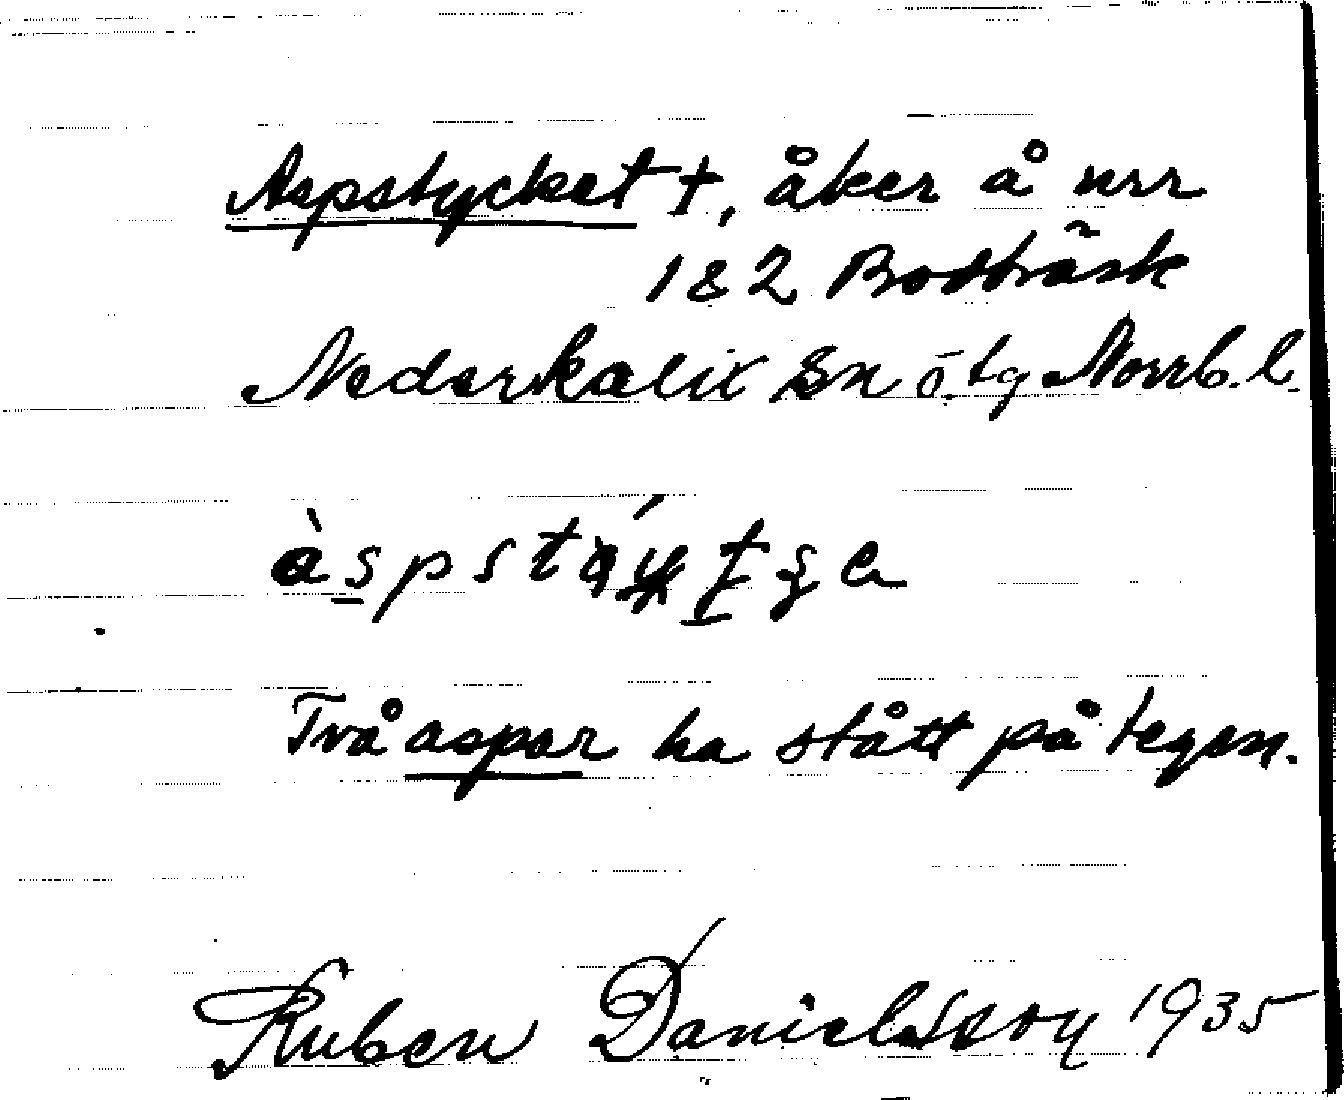 Aspstycket †, åker å nrr
1 & 2 Bodträsk
Nederkalix sn ö. tg Norrb. l.
Två aspar ha stått på tegen.
Ruben Danielsson 1935